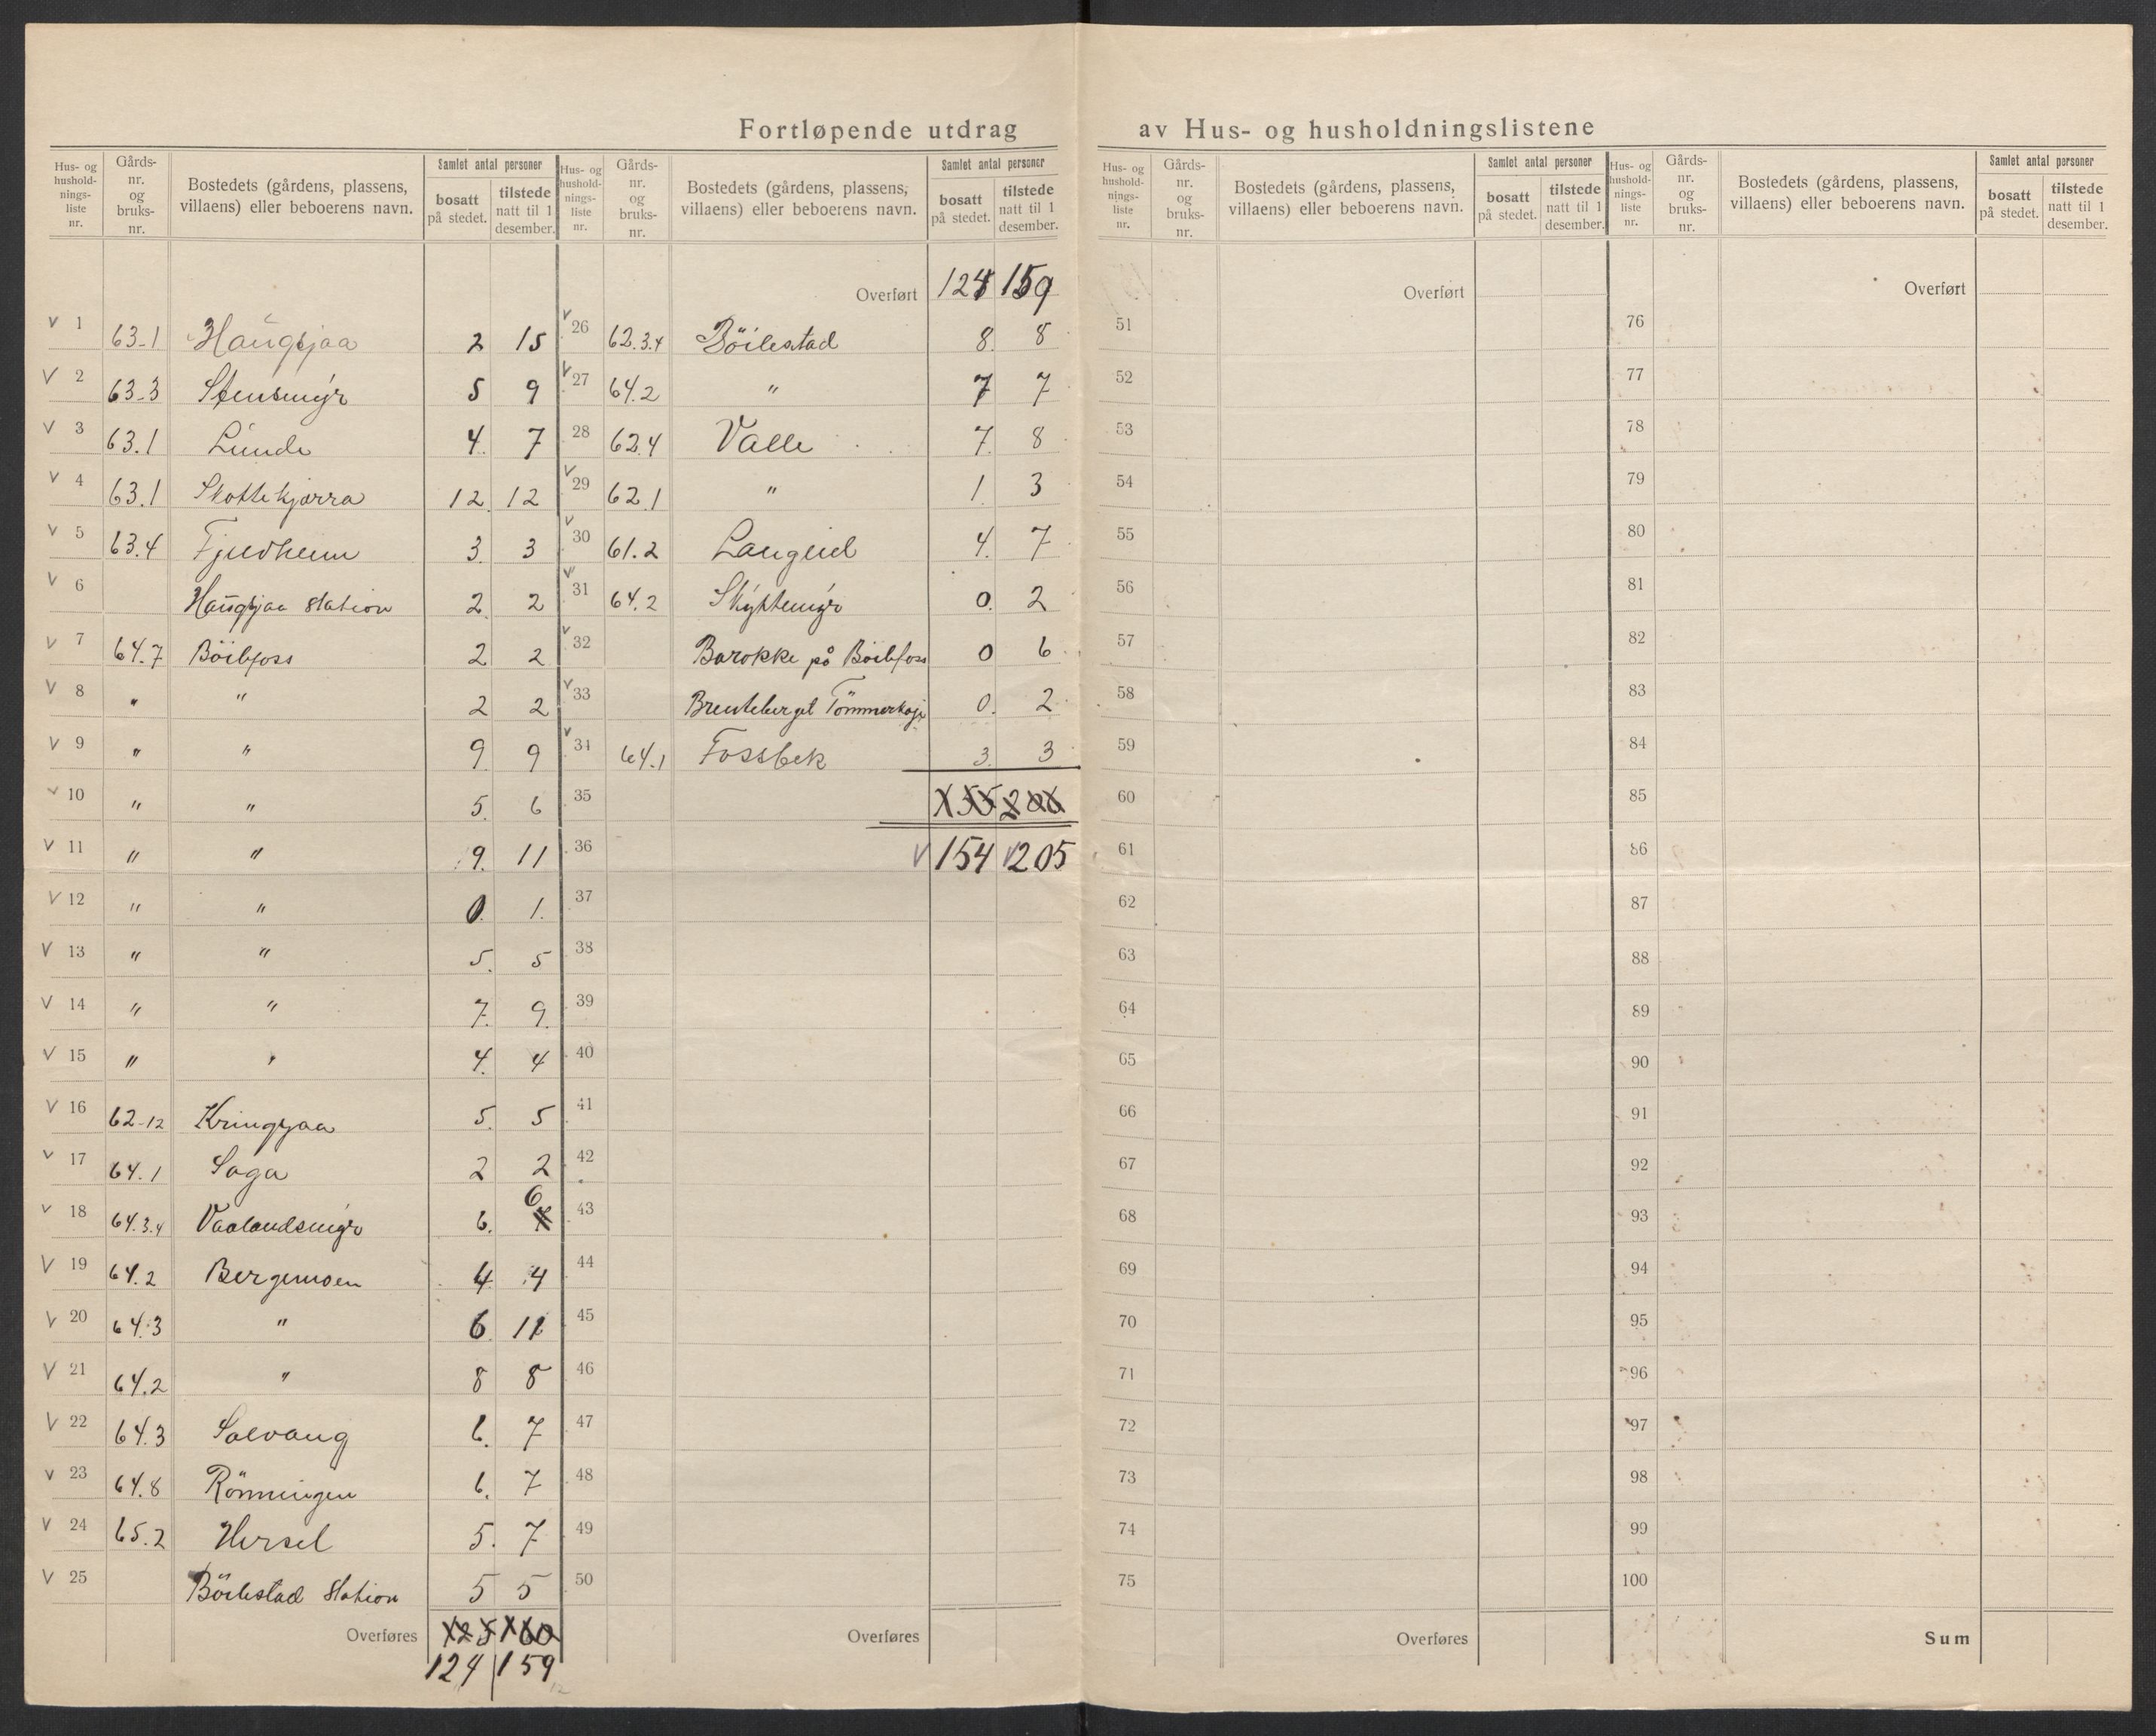 Fortløpende utdrag av Hus- og husholdningslistene
Hus- og husholdningsliste nr. | Gårdsnr. og bruksnr. | Bostedets (gårdens, plassens, villaens) eller beboerens navn. | Samlet antal personer bosatt på stedet. | tilstede natt til 1 desember.
v 1 63-1 Haugsjaa 2 15
v 2 63-3 Stensmyr 5 9
v 3 63.1 Lunde 4. 7
v 4 63.1 Skottekjærra 12. 12
v 5 63.4 Fjeldheim 3. 3
v 6 Haugsjaa Station 2. 2
v 7 64.7 Böilefoss 2 2
v 8 " " 2 2
v 9 " " 9. 9
v 10 " " 5. 6
v 11 " " 9. 11
v 12 " " 0. 1.
v 13 " " 5. 5
v 14 " " 7. 9.
v 15 " " 4. 4
v 16 62-12 Kringsjaa 5. 5
v 17 64.1 Saga 2 2
v 18 64.3.4 Vaalandsmyr 6. 6
v 19 64.2 Bergemoen 4. 4
v 20 64.3 " 6. 11
v 21 64.2 " 8 8
v 22 64.3 Solvang 6. 7
v 23 64.8 Rönningen 6. 7
v 24 65.2 Hersel 5. 7
v 25 Böilestad Station 5 5
Overføres 125 160
124 159
Hus- og husholdningsliste nr. | Gårdsnr. og bruksnr. | Bostedets (gårdens, plassens, villaens) eller beboerens navn. | Samlet antal personer bosatt på stedet. | tilstede natt til 1 desember.
Overført 124 159
v 26 62.3.4 Böilestad 8. 8
v 27 64.2 " 7 7
28 62.4 Valle 7. 8
v 29 62.1 " 1. 3
v 30 61.2 Langeid 4. 7
v 31 64.2 Skyttemyr 0. 2
v 32 Barokke på Böilefoss 0 6
v 33 Brenteberget Tömmerkoje 0. 2
v 34 64.1 Fossbek 3. 3
35 155 206
36 v 154 v 205
37
38
39
40
41
42
43
44
45
46
47
48
49
50
Overføres
Hus- og husholdningsliste nr. | Gårdsnr. og bruksnr. | Bostedets (gårdens, plassens, villaens) eller beboerens navn. | Samlet antal personer bosatt på stedet. | tilstede natt til 1 desember.
Overført
51
52
53
54
55
56
57
58
59
60
61
62
63
64
65
66
67
68
69
70
71
72
73
74
75
Overføres
Hus- og husholdningsliste nr. | Gårdsnr. og bruksnr. | Bostedets (gårdens, plassens, villaens) eller beboerens navn. | Samlet antal personer bosatt på stedet. | tilstede natt til 1 desember.
Overført
76
77
78
79
80
81
82
83
84
85
86
87
88
89
90
91
92
93
94
95
96
97
98
99
100
Sum